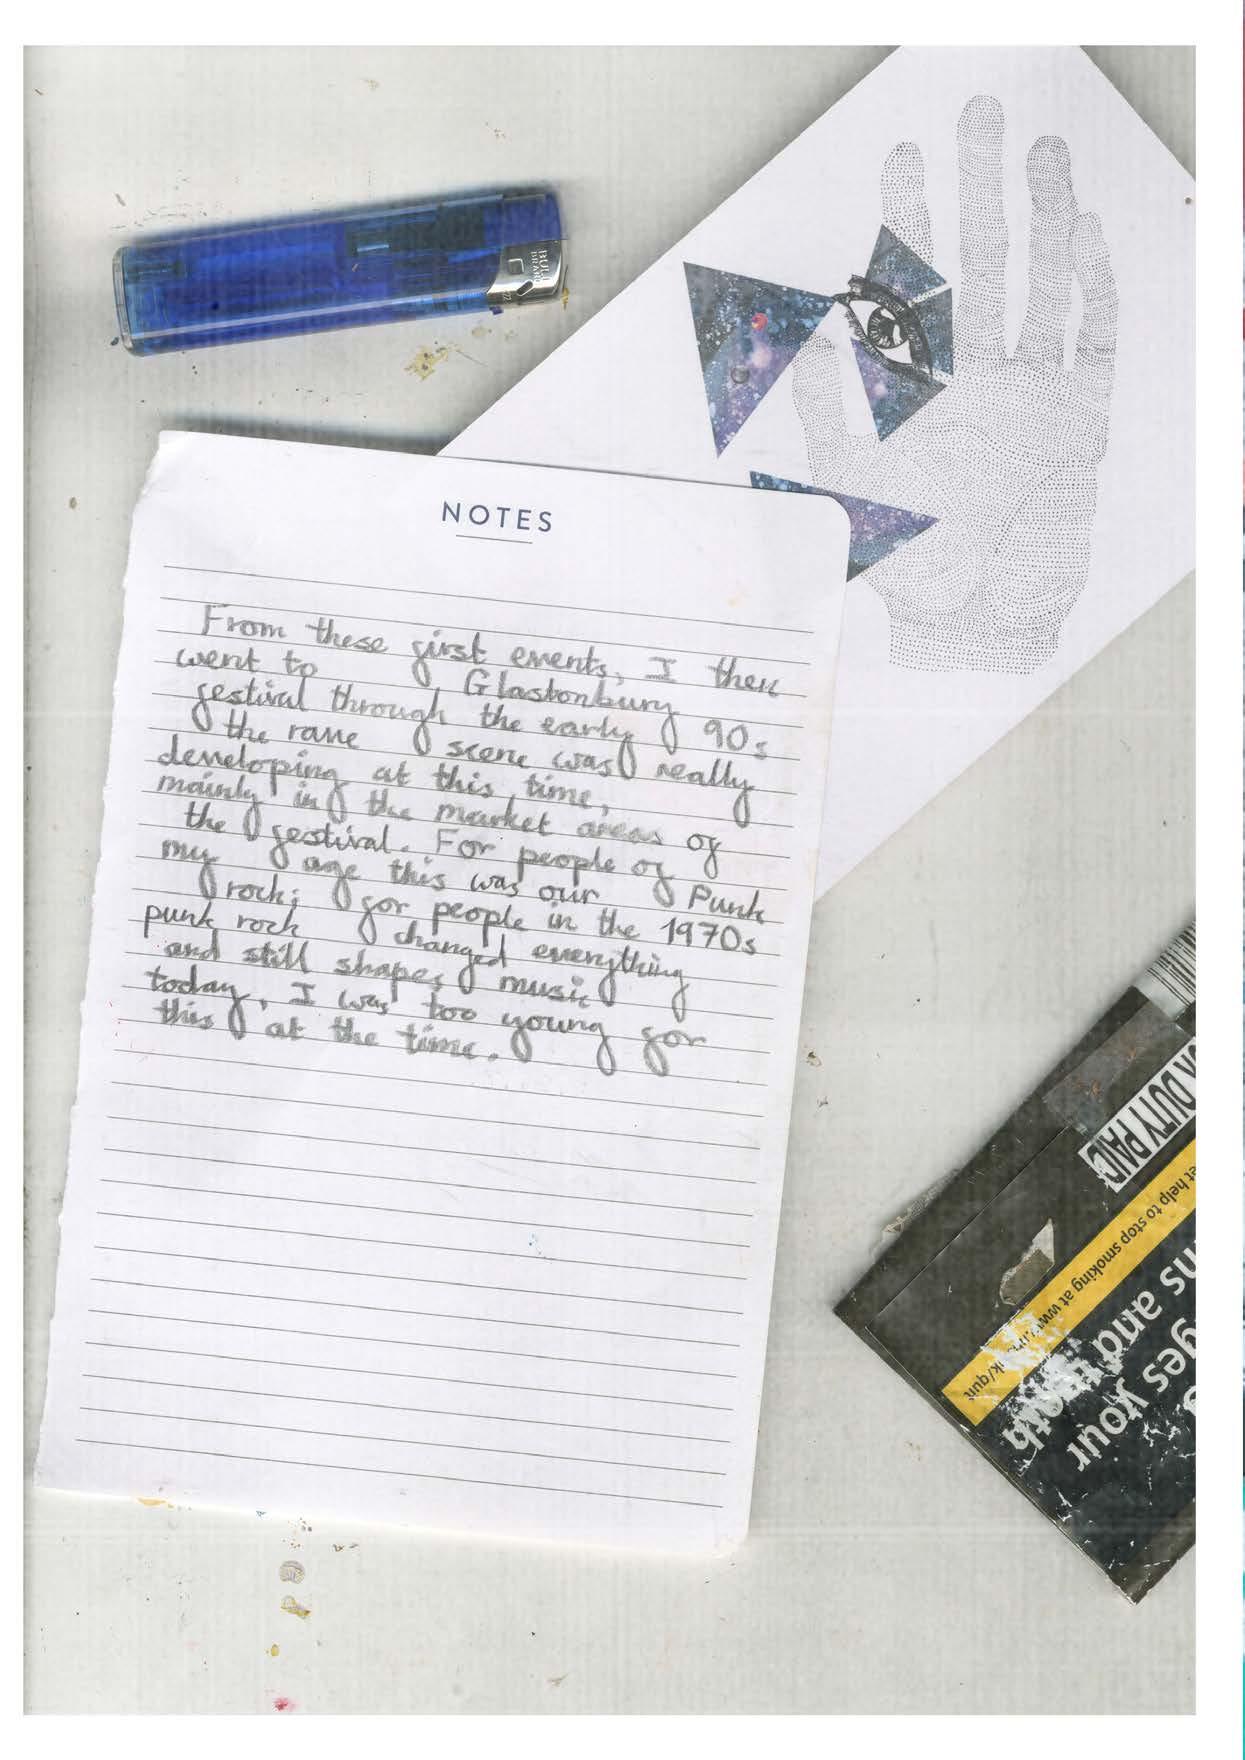 BULL
BRAND
NOTES
From these first events, I then
went to Glastonbury
festival through the early 90s
the rave scene was really
developing at this time,
mainly in the market areas of
the festival. For people of
my age this was our Punk
rock; for people in the 1970s
punk rock changed everything
and still shapes music
today, I was too young for
this at the time.
DUTY PAID
help to stop smoking at
and
your